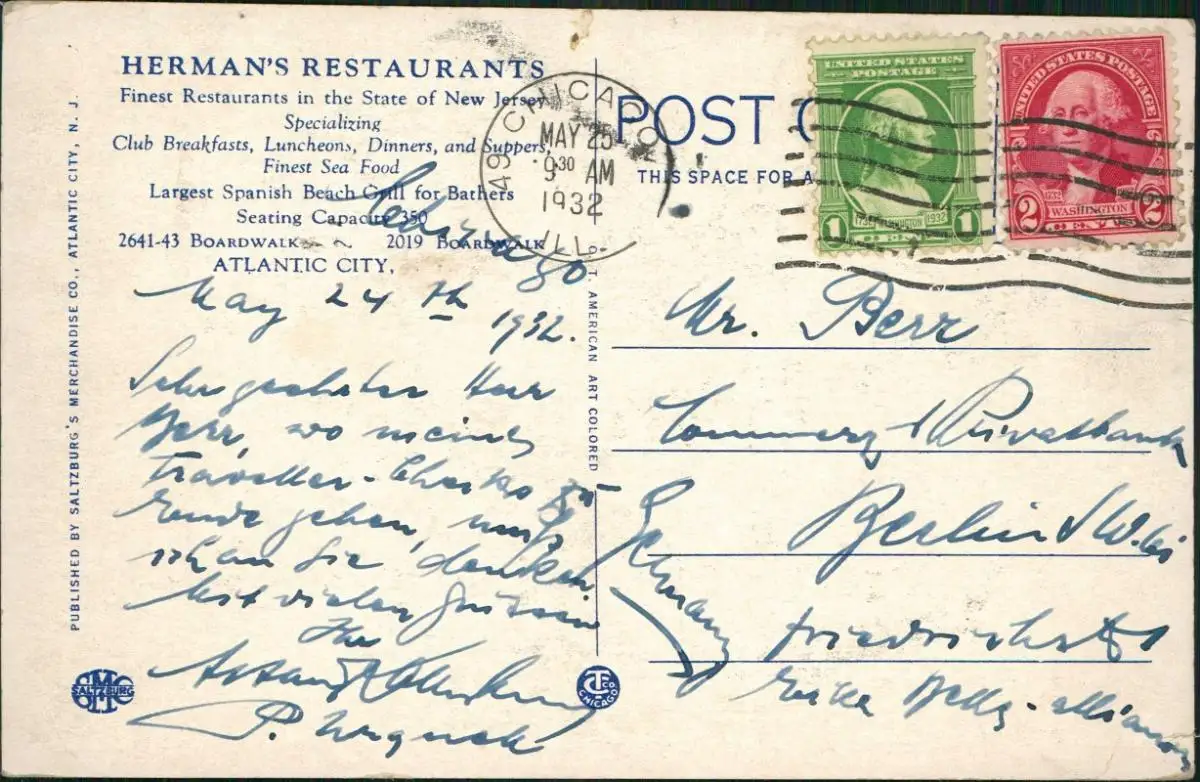 HERMAN'S RESTAURANTS
Finest Restaurants in the State of New Jersey
Specializing
Club Breakfasts, Luncheons, Dinners, and Suppers,
Finest Sea Food
Largest Spanish Beach Grill for Bathers
Seating Capacity 350
2641-43 BOARDWALK 2019 BOARDWALK
ATLANTIC CITY,
PUBLISHED BY SALTZBURG'S MERCHANDISE CO., ATLANTIC CITY, N. J.
May 24th
1932.
Sehr geehrter Herr
Berr, wo meine
Traveller-Checks zu
Ende gehen, muss
ich an Sie denken
Mit vielen Grüssen
Ihr
C. T. AMERICAN ART COLORED
SALTZBURG
CHICAGO
49 CHICAGO
MAY 25
9 30 AM
1932
ILL.
POST C
THIS SPACE FOR A
UNITED STATES
POSTAGE
1 1732 WASHINGTON 1932 1
CENT
UNITED STATES POSTAGE
2 WASHINGTON 2
CENTS
Mr. Berr
Commerz & Privatbank
Berlin SW.
Germany
Friedrichstr
Ecke Belle-Alliance